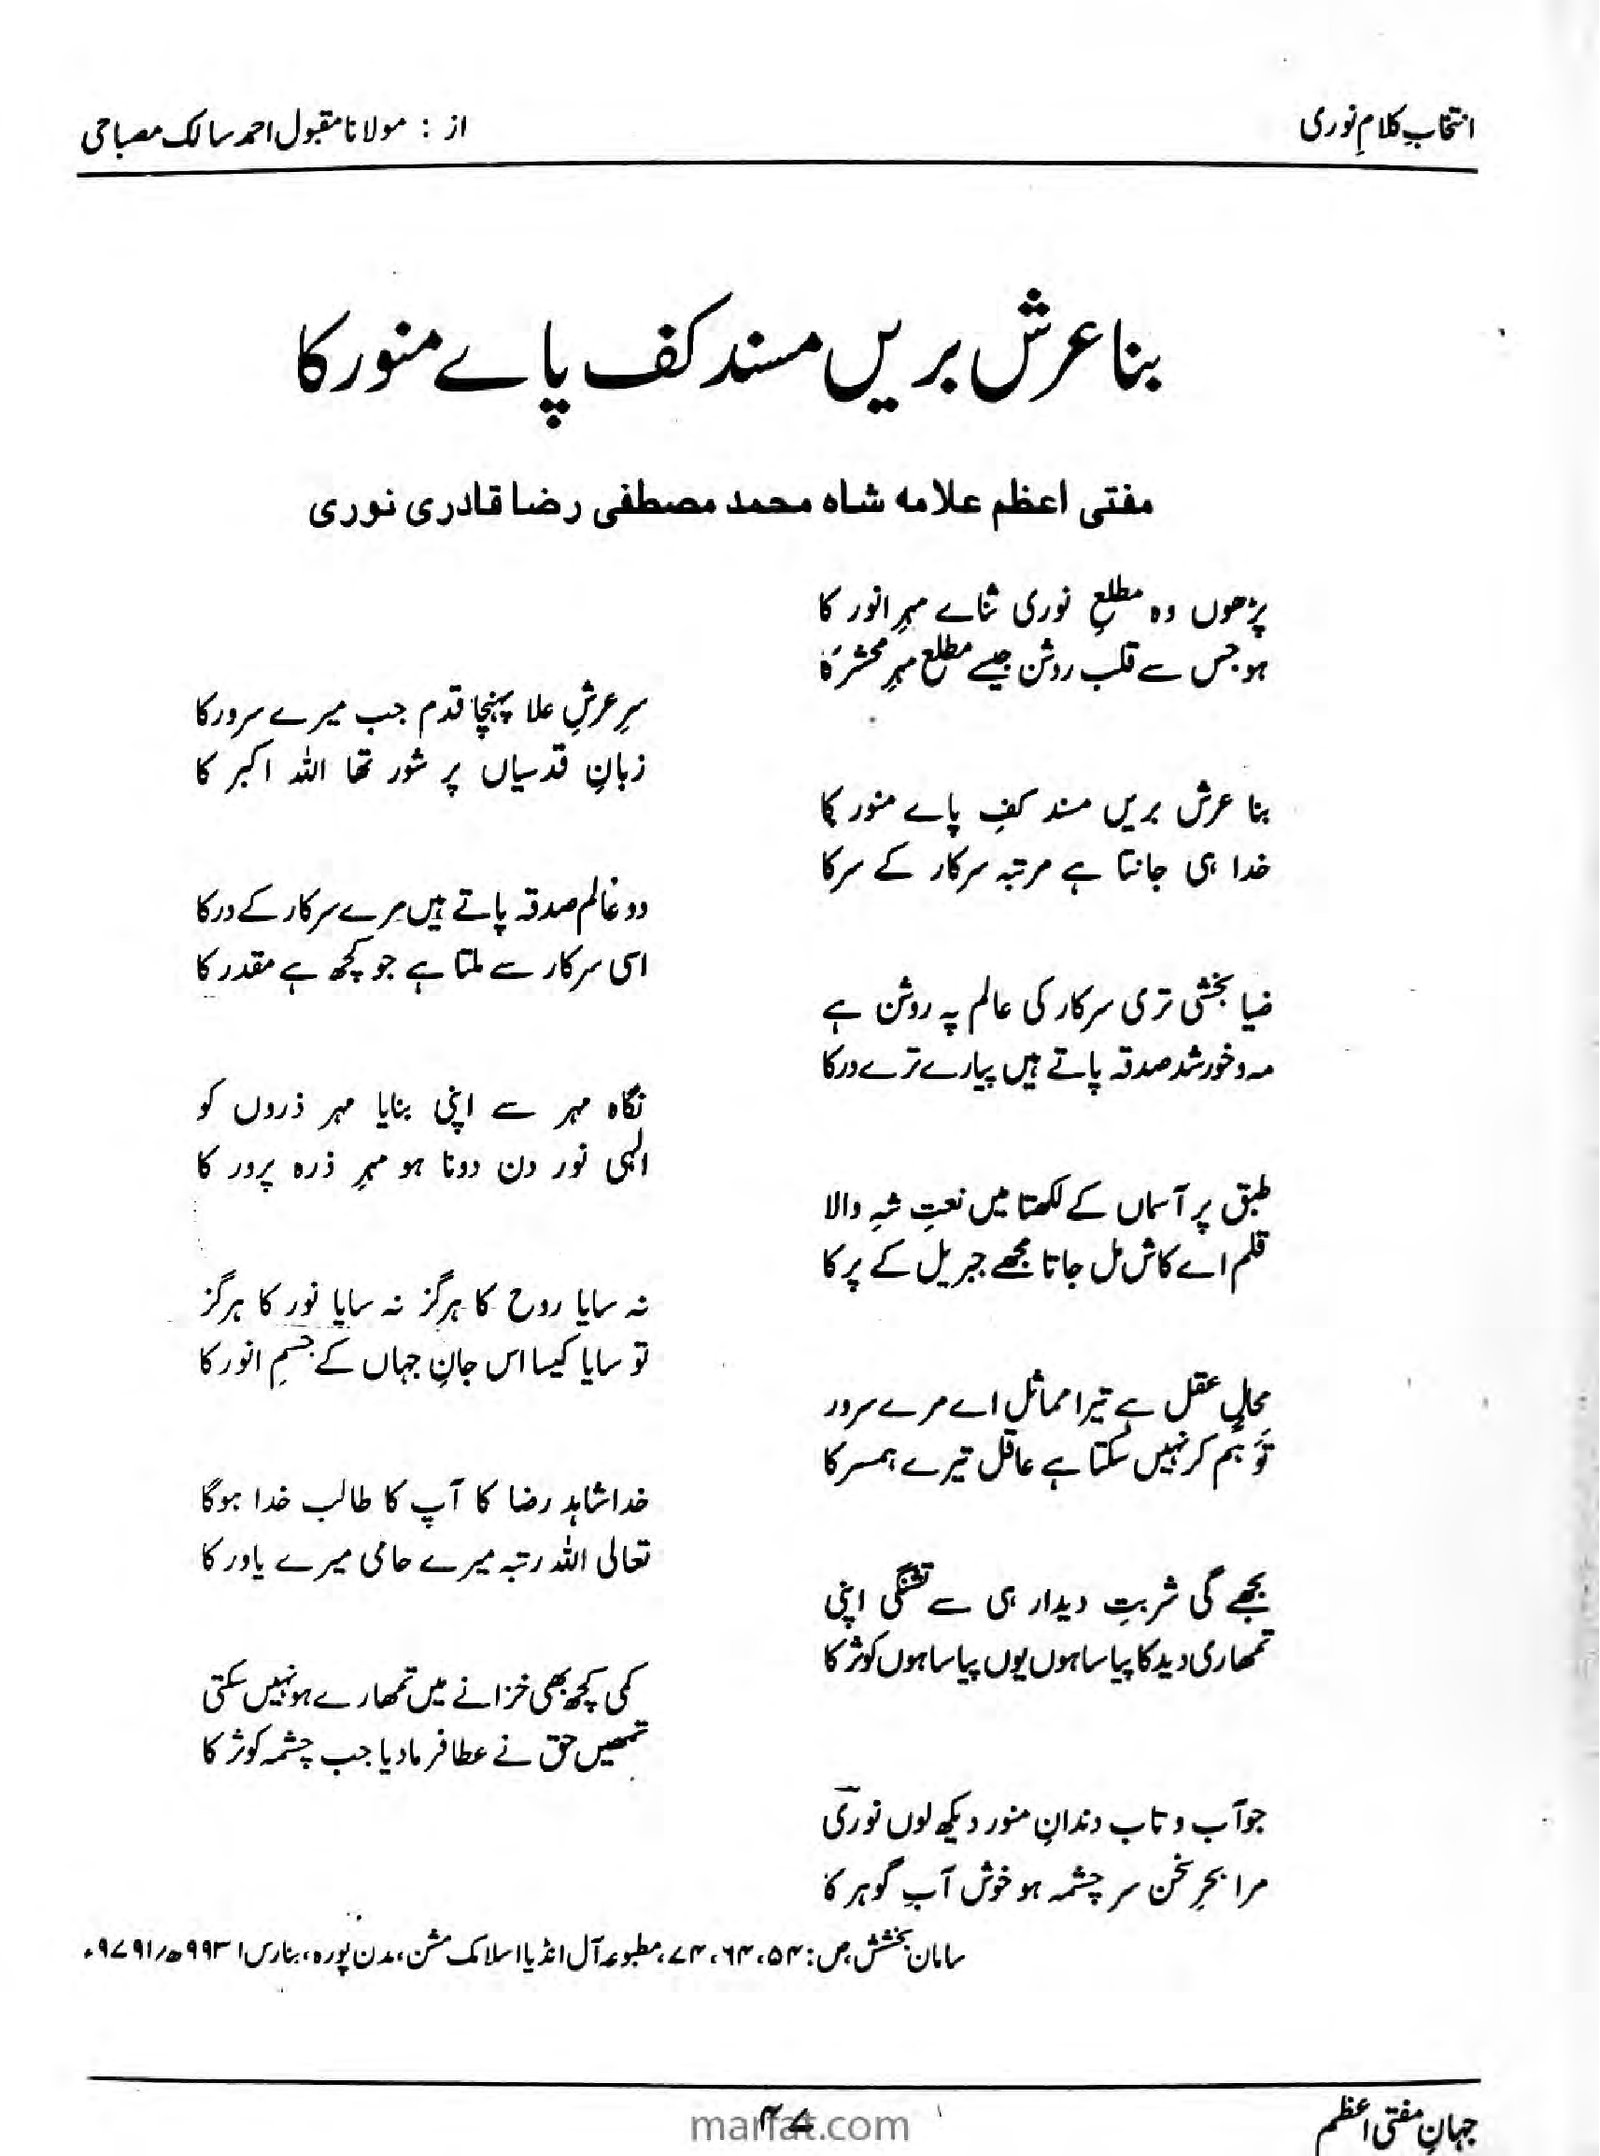 انتخابِ کلامِ نوری
از : مولانا مقبول احمد سالک مصباحی
بنا عرش بریں مسند کف پاے منور کا
مفتی اعظم علامہ شاہ محمد مصطفی رضا قادری نوری
پڑھوں وہ مطلعِ نوری ثناے مہرِ انور کا
ہو جس سے قلب روشن جیسے مطلع مہرِ محشر کا
سرِ عرشِ علا پہنچا قدم جب میرے سرور کا
زبانِ قدسیاں پر شور تھا اللہ اکبر کا
بنا عرش بریں مسند کفِ پاے منور کا
خدا ہی جانتا ہے مرتبہ سرکار کے سر کا
دو عالم صدقہ پاتے ہیں مرے سرکار کے در کا
اسی سرکار سے ملتا ہے جو کچھ ہے مقدر کا
ضیا بخشی تری سرکار کی عالم پہ روشن ہے
مہ و خورشد صدقہ پاتے ہیں پیارے ترے در کا
نگاہ مہر سے اپنی بنایا مہر ذروں کو
الہی نور دن دونا ہو مہرِ ذرہ پرور کا
طبق پر آسماں کے لکھتا میں نعتِ شہِ والا
قلم اے کاش مل جاتا مجھے جبریل کے پر کا
نہ سایا روح کا ہرگز نہ سایا نور کا ہرگز
تو سایا کیسا اس جانِ جہاں کے جسمِ انور کا
محالِ عقل ہے تیرا مماثل اے مرے سرور
توہّم کر نہیں سکتا ہے عاقل تیرے ہمسر کا
خدا شاہد رضا کا آپ کا طالب خدا ہوگا
تعالی اللہ رتبہ میرے حامی میرے یاور کا
بجھے گی شربتِ دیدار ہی سے تشنگی اپنی
تمھاری دید کا پیاسا ہوں یوں پیاسا ہوں کوثر کا
کمی کچھ بھی خزانے میں تمھارے ہو نہیں سکتی
تمھیں حق نے عطا فرمادیا جب چشمہ کوثر کا
جو آب و تاب دندانِ منور دیکھ لوں نوریؔ
مرا بحرِ سخن سر چشمہ ہو خوش آبِ گوہر کا
سامان بخشش، ص: ۵۴، ۶۴، ۷۴، مطبوعہ آل انڈیا اسلامک مشن، مدن پورہ، بنارس ۹۹۳۱ھ/۹۷۹۱ء
جہانِ مفتی اعظم
۴۷
marfat.com